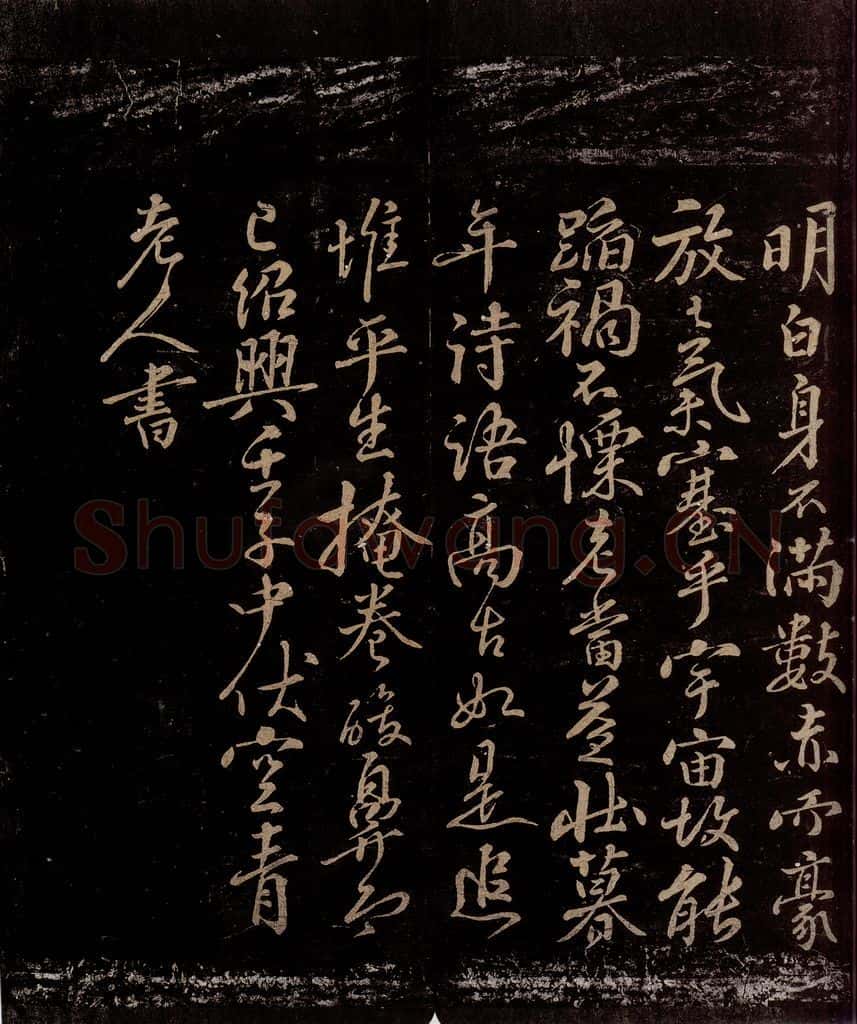 明白身不滿數赤而豪
放之氣塞乎宇宙故能
蹈禍不慄老當益壯暮
年詩語高古如是追
惟平生掩卷酸鼻而
已紹興壬子中伏空青
老人書
Shufawang.CN